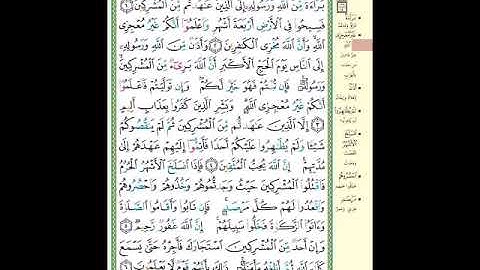 بَرَآءَةٌ مِّنَ ٱللَّهِ وَرَسُولِهِۦٓ إِلَى ٱلَّذِينَ عَٰهَدتُّم مِّنَ ٱلْمُشْرِكِينَ ١
فَسِيحُوا۟ فِى ٱلْأَرْضِ أَرْبَعَةَ أَشْهُرٍ وَٱعْلَمُوٓا۟ أَنَّكُمْ غَيْرُ مُعْجِزِى
ٱللَّهِ وَأَنَّ ٱللَّهَ مُخْزِى ٱلْكَٰفِرِينَ ٢ وَأَذَٰنٌ مِّنَ ٱللَّهِ وَرَسُولِهِۦٓ
إِلَى ٱلنَّاسِ يَوْمَ ٱلْحَجِّ ٱلْأَكْبَرِ أَنَّ ٱللَّهَ بَرِىٓءٌ مِّنَ ٱلْمُشْرِكِينَ
وَرَسُولُهُۥ فَإِن تُبْتُمْ فَهُوَ خَيْرٌ لَّكُمْ وَإِن تَوَلَّيْتُمْ فَٱعْلَمُوٓا۟
أَنَّكُمْ غَيْرُ مُعْجِزِى ٱللَّهِ وَبَشِّرِ ٱلَّذِينَ كَفَرُوا۟ بِعَذَابٍ أَلِيمٍ
٣ إِلَّا ٱلَّذِينَ عَٰهَدتُّم مِّنَ ٱلْمُشْرِكِينَ ثُمَّ لَمْ يَنقُصُوكُمْ
شَيْـًٔا وَلَمْ يُظَٰهِرُوا۟ عَلَيْكُمْ أَحَدًا فَأَتِمُّوٓا۟ إِلَيْهِمْ عَهْدَهُمْ إِلَىٰ
مُدَّتِهِمْ إِنَّ ٱللَّهَ يُحِبُّ ٱلْمُتَّقِينَ ٤ فَإِذَا ٱنسَلَخَ ٱلْأَشْهُرُ ٱلْحُرُمُ
فَٱقْتُلُوا۟ ٱلْمُشْرِكِينَ حَيْثُ وَجَدتُّمُوهُمْ وَخُذُوهُمْ وَٱحْصُرُوهُمْ
وَٱقْعُدُوا۟ لَهُمْ كُلَّ مَرْصَدٍ فَإِن تَابُوا۟ وَأَقَامُوا۟ ٱلصَّلَوٰةَ
وَءَاتَوُا۟ ٱلزَّكَوٰةَ فَخَلُّوا۟ سَبِيلَهُمْ إِنَّ ٱللَّهَ غَفُورٌ رَّحِيمٌ ٥
وَإِنْ أَحَدٌ مِّنَ ٱلْمُشْرِكِينَ ٱسْتَجَارَكَ فَأَجِرْهُ حَتَّىٰ يَسْمَعَ
كَلَٰمَ ٱللَّهِ ثُمَّ أَبْلِغْهُ مَأْمَنَهُۥ ذَٰلِكَ بِأَنَّهُمْ قَوْمٌ لَّا يَعْلَمُونَ ٦